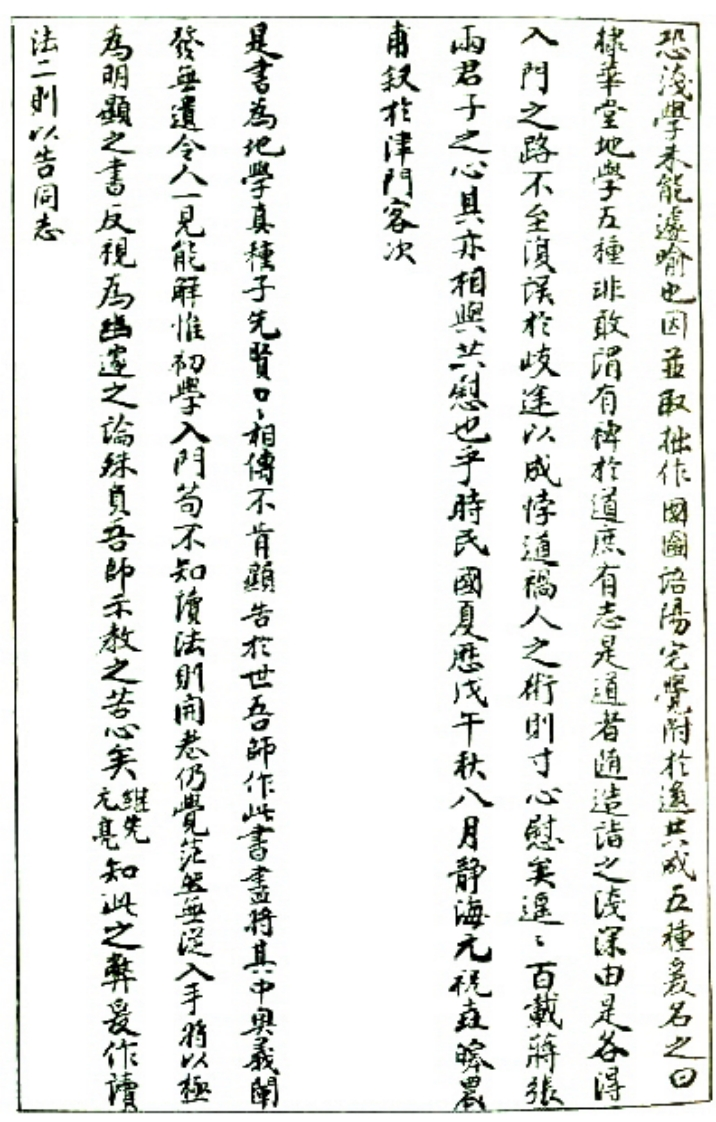 恐淺學未能遽喻也因並取拙作國圖語陽宅覺附於邊共成五種爰名之曰
棣華堂地學五種非敢謂有裨於道庶有志是道者隨造詣之淺深由是各得
入門之路不至復誤於歧途以成悖道禍人之術則寸心慰矣遙〻百載蔣張
兩君子之心其亦相與共慰也乎時民國夏歷戊午秋八月靜海元祝垚皞農
甫敘於津門客次
是書為地學真種子先賢口〻相傳不肯顯告於世吾師作此書盡將其中奧義闡
發無遺令人一見能解惟初學入門苟不知讀法則開卷仍覺茫然無從入手將以極
為明顯之書反視為幽邃之論殊負吾師示教之苦心矣維先元亮知此之弊爰作讀
法二則以告同志